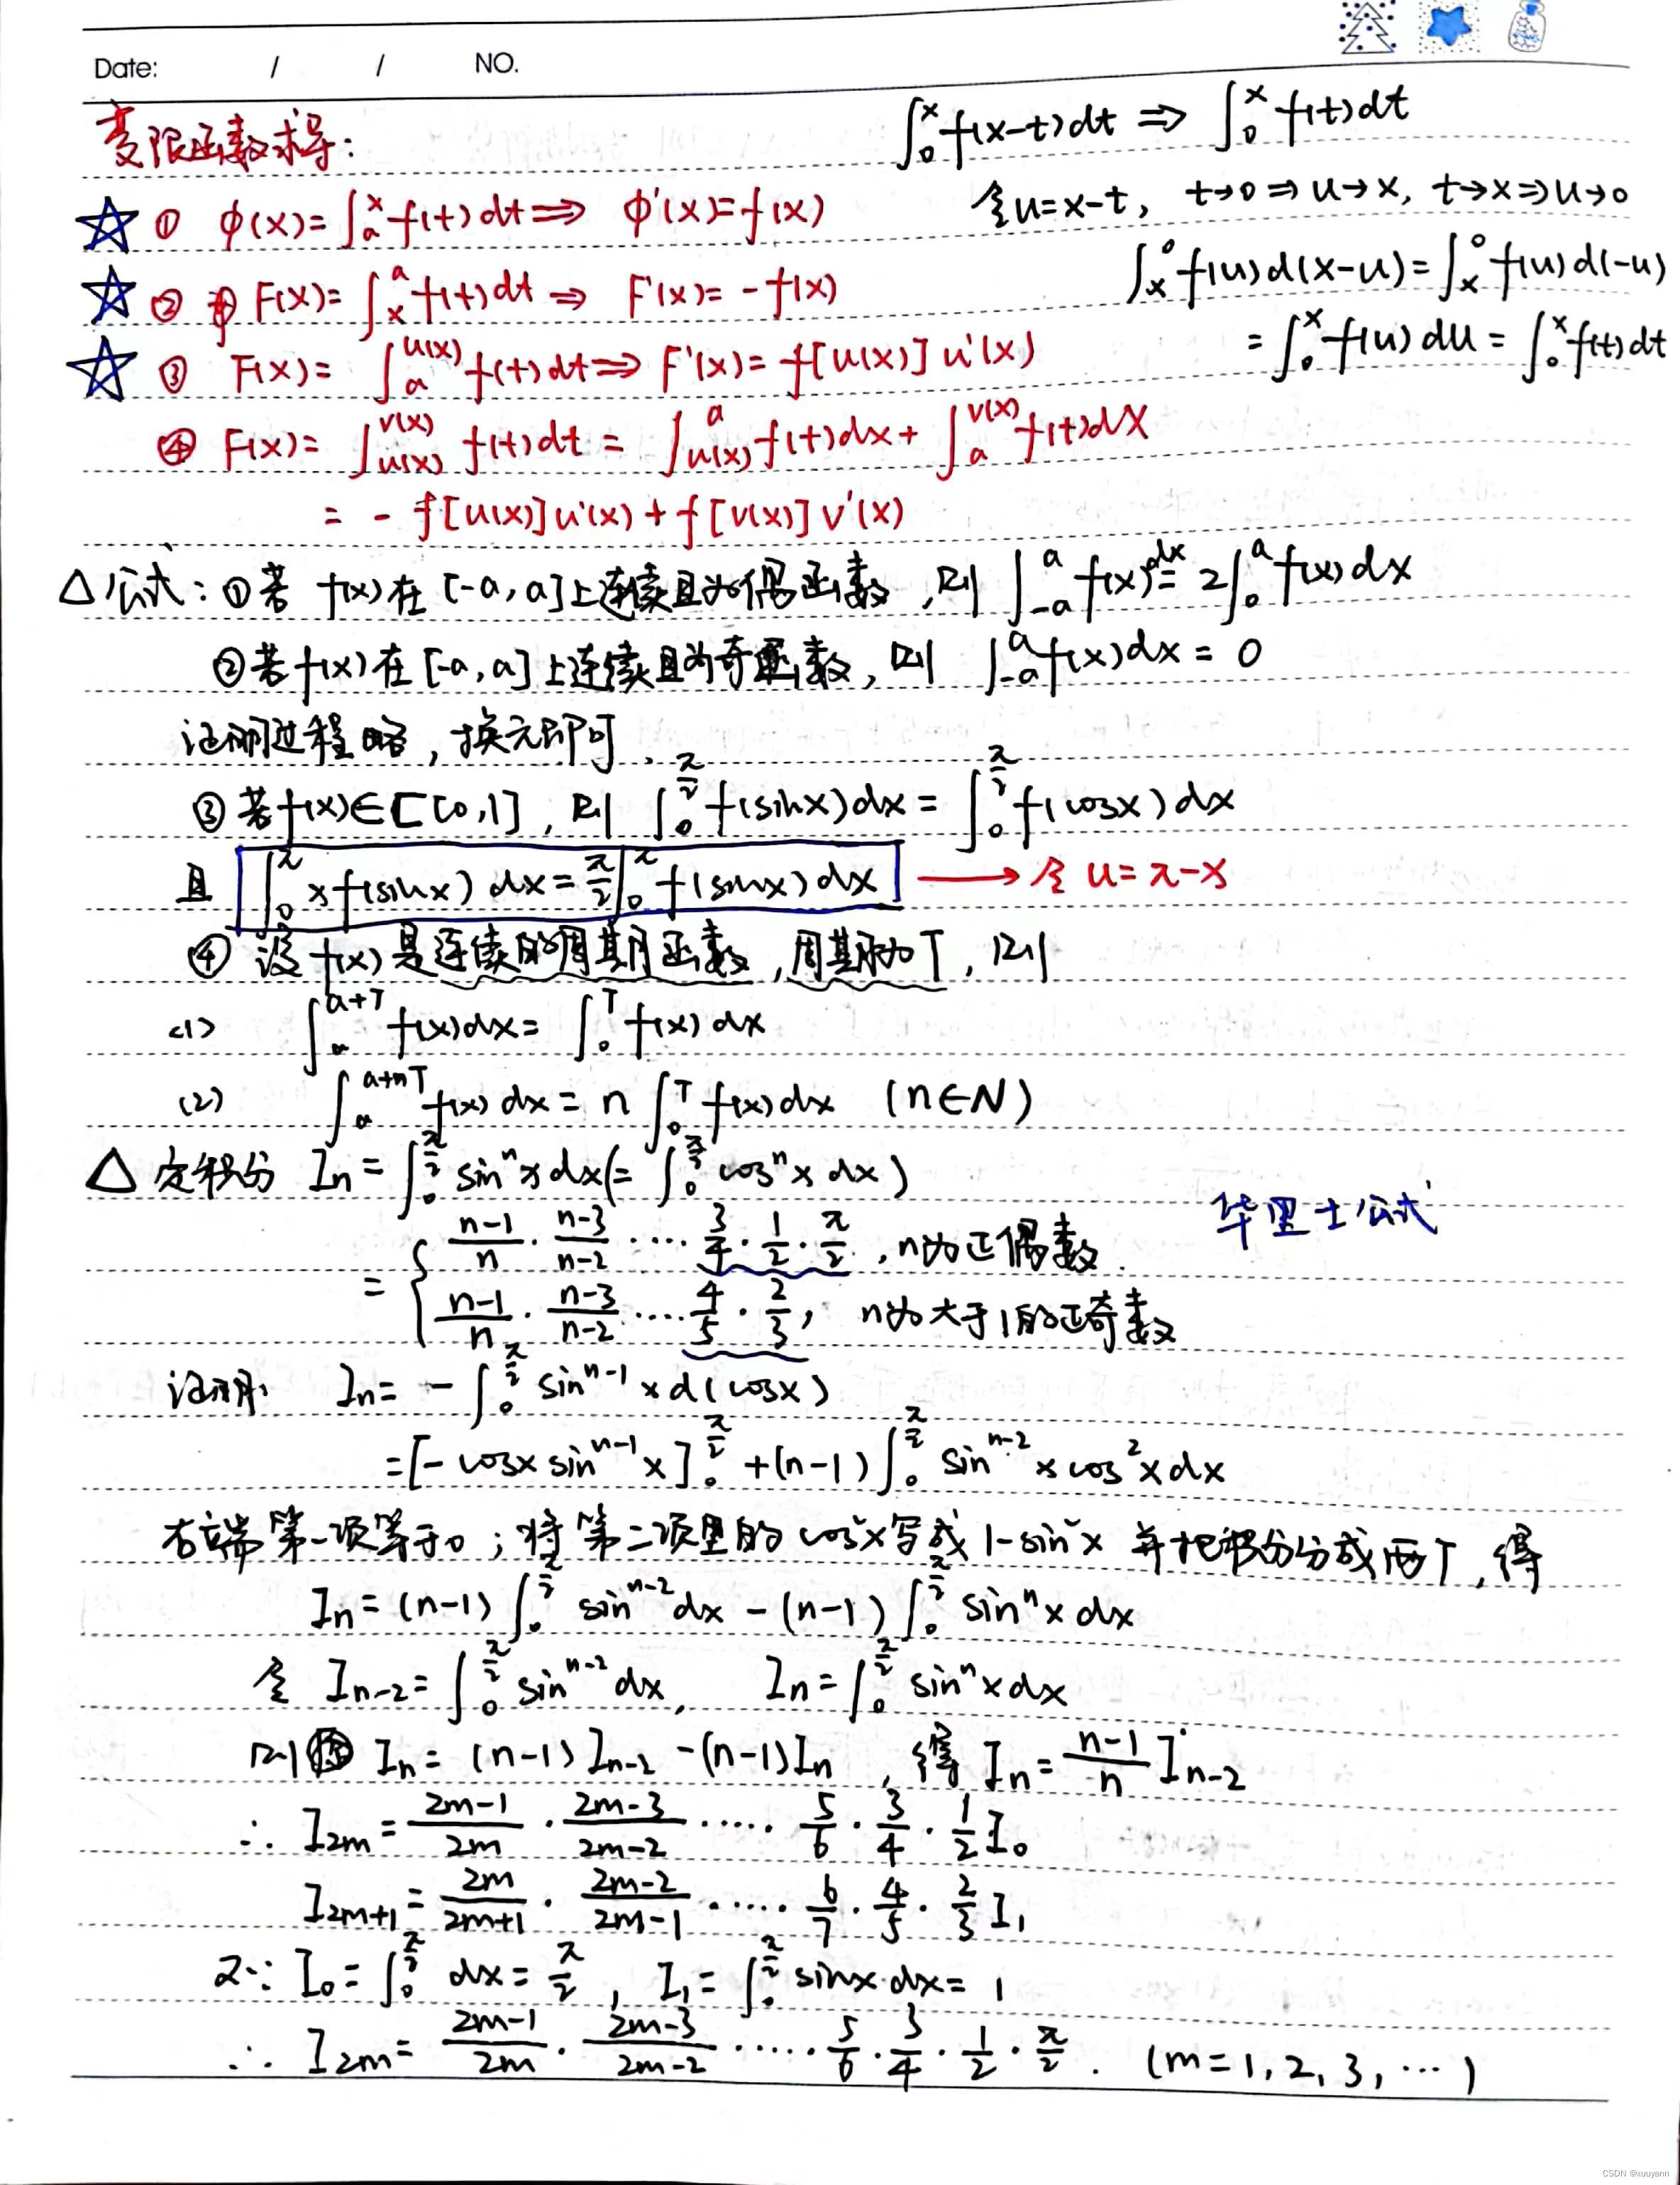 Date: / / NO.
变限函数求导:
∫₀ˣ f(x-t)dt ⇒ ∫₀ˣ f(t)dt
令u=x-t, t→0⇒u→x, t→x⇒u→0
∫ₓ⁰ f(u)d(x-u)=∫ₓ⁰ f(u)d(-u)
=∫₀ˣ f(u)du=∫₀ˣ f(t)dt
① φ(x)=∫ₐˣ f(t)dt⇒ φ'(x)=f(x)
② F(x)=∫ₓᵃ f(t)dt⇒ F'(x)=-f(x)
③ F(x)=∫ₐ^{u(x)} f(t)dt⇒F'(x)=f[u(x)]u'(x)
④ F(x)=∫_{u(x)}^{v(x)} f(t)dt=∫_{u(x)}^{a} f(t)dx+∫ₐ^{v(x)} f(t)dx
=-f[u(x)]u'(x)+f[v(x)]v'(x)
△公式:①若 f(x)在[-a,a]上连续且为偶函数,则 ∫₋ₐᵃ f(x)dx=2∫₀ᵃ f(x)dx
②若f(x)在[-a,a]上连续且为奇函数,则 ∫₋ₐᵃ f(x)dx=0
证明过程略,换元即可.
③若f(x)∈C[0,1],则 ∫₀^{π/2} f(sinx)dx=∫₀^{π/2} f(cosx)dx
且 ∫₀^π xf(sinx)dx=π/2∫₀^π f(sinx)dx → 令 u=π-x
④设f(x)是连续的周期函数,周期为T,则
(1) ∫ₐ^{a+T} f(x)dx=∫₀ᵀ f(x)dx
(2) ∫ₐ^{a+nT} f(x)dx=n∫₀ᵀ f(x)dx (n∈N)
△定积分 Iₙ=∫₀^{π/2} sinⁿxdx(=∫₀^{π/2} cosⁿxdx)
华里士公式
={ (n-1)/n·(n-3)/(n-2)·…·3/4·1/2·π/2, n为正偶数.
(n-1)/n·(n-3)/(n-2)·…·4/5·2/3, n为大于1的正奇数
证明: Iₙ=-∫₀^{π/2} sinⁿ⁻¹xd(cosx)
=[-cosxsinⁿ⁻¹x]₀^{π/2}+(n-1)∫₀^{π/2} sinⁿ⁻²xcos²xdx
右端第一项等于0;将第二项里的cos²x写成1-sin²x并把积分分成两个,得
Iₙ=(n-1)∫₀^{π/2} sinⁿ⁻²dx-(n-1)∫₀^{π/2} sinⁿxdx
令 Iₙ₋₂=∫₀^{π/2} sinⁿ⁻²dx, Iₙ=∫₀^{π/2} sinⁿxdx
则 Iₙ=(n-1)Iₙ₋₂-(n-1)Iₙ,得 Iₙ=(n-1)/n Iₙ₋₂
∴ I₂ₘ=(2m-1)/2m·(2m-3)/(2m-2)·…·5/6·3/4·1/2 I₀
I₂ₘ₊₁=2m/(2m+1)·(2m-2)/(2m-1)·…·6/7·4/5·2/3 I₁
又∵ I₀=∫₀^{π/2} dx=π/2, I₁=∫₀^{π/2} sinx·dx=1
∴ I₂ₘ=(2m-1)/2m·(2m-3)/(2m-2)·…·5/6·3/4·1/2·π/2. (m=1,2,3,…)
CSDN @xuuyann